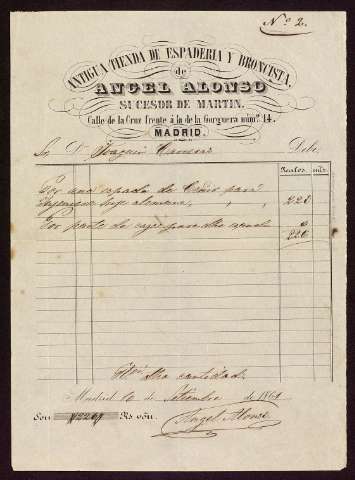 Nº 2.
ANTIGUA TIENDA DE ESPADERIA Y BRONCISTA,
de
ANGEL ALONSO
SUCESOR DE MARTIN.
Calle de la Cruz frente á la de la Gorguera núm.º 14.
MADRID.
Sr. Dn. Joaquin Debe,
Reales. mrs.
Por una espada de Ceñir para
hoja alemana, 220
Por porte de caja para dha 6
226
Rvi. dha cantidad.
Madrid 10 de Setiembre de 1861
Son 226 Rs. von.
Angel Alonso